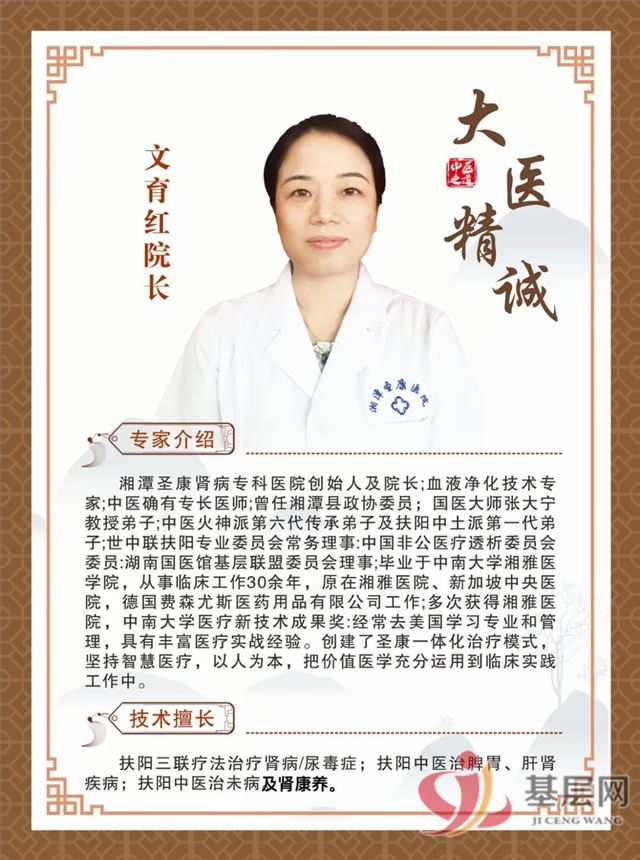 文育红院长
大医精诚
中医之道
湘潭圣康医院
专家介绍
湘潭圣康肾病专科医院创始人及院长;血液净化技术专
家;中医确有专长医师;曾任湘潭县政协委员；国医大师张大宁
教授弟子;中医火神派第六代传承弟子及扶阳中土派第一代弟
子;世中联扶阳专业委员会常务理事:中国非公医疗透析委员会
委员:湖南国医馆基层联盟委员会理事;毕业于中南大学湘雅医
学院，从事临床工作30余年，原在湘雅医院、新加坡中央医
院，德国费森尤斯医药用品有限公司工作;多次获得湘雅医
院，中南大学医疗新技术成果奖:经常去美国学习专业和管
理，具有丰富医疗实战经验。创建了圣康一体化治疗模式，
坚持智慧医疗，以人为本，把价值医学充分运用到临床实践
工作中。
技术擅长
扶阳三联疗法治疗肾病/尿毒症；扶阳中医治脾胃、肝肾
疾病；扶阳中医治未病及肾康养。
基层网
JI CENG WANG